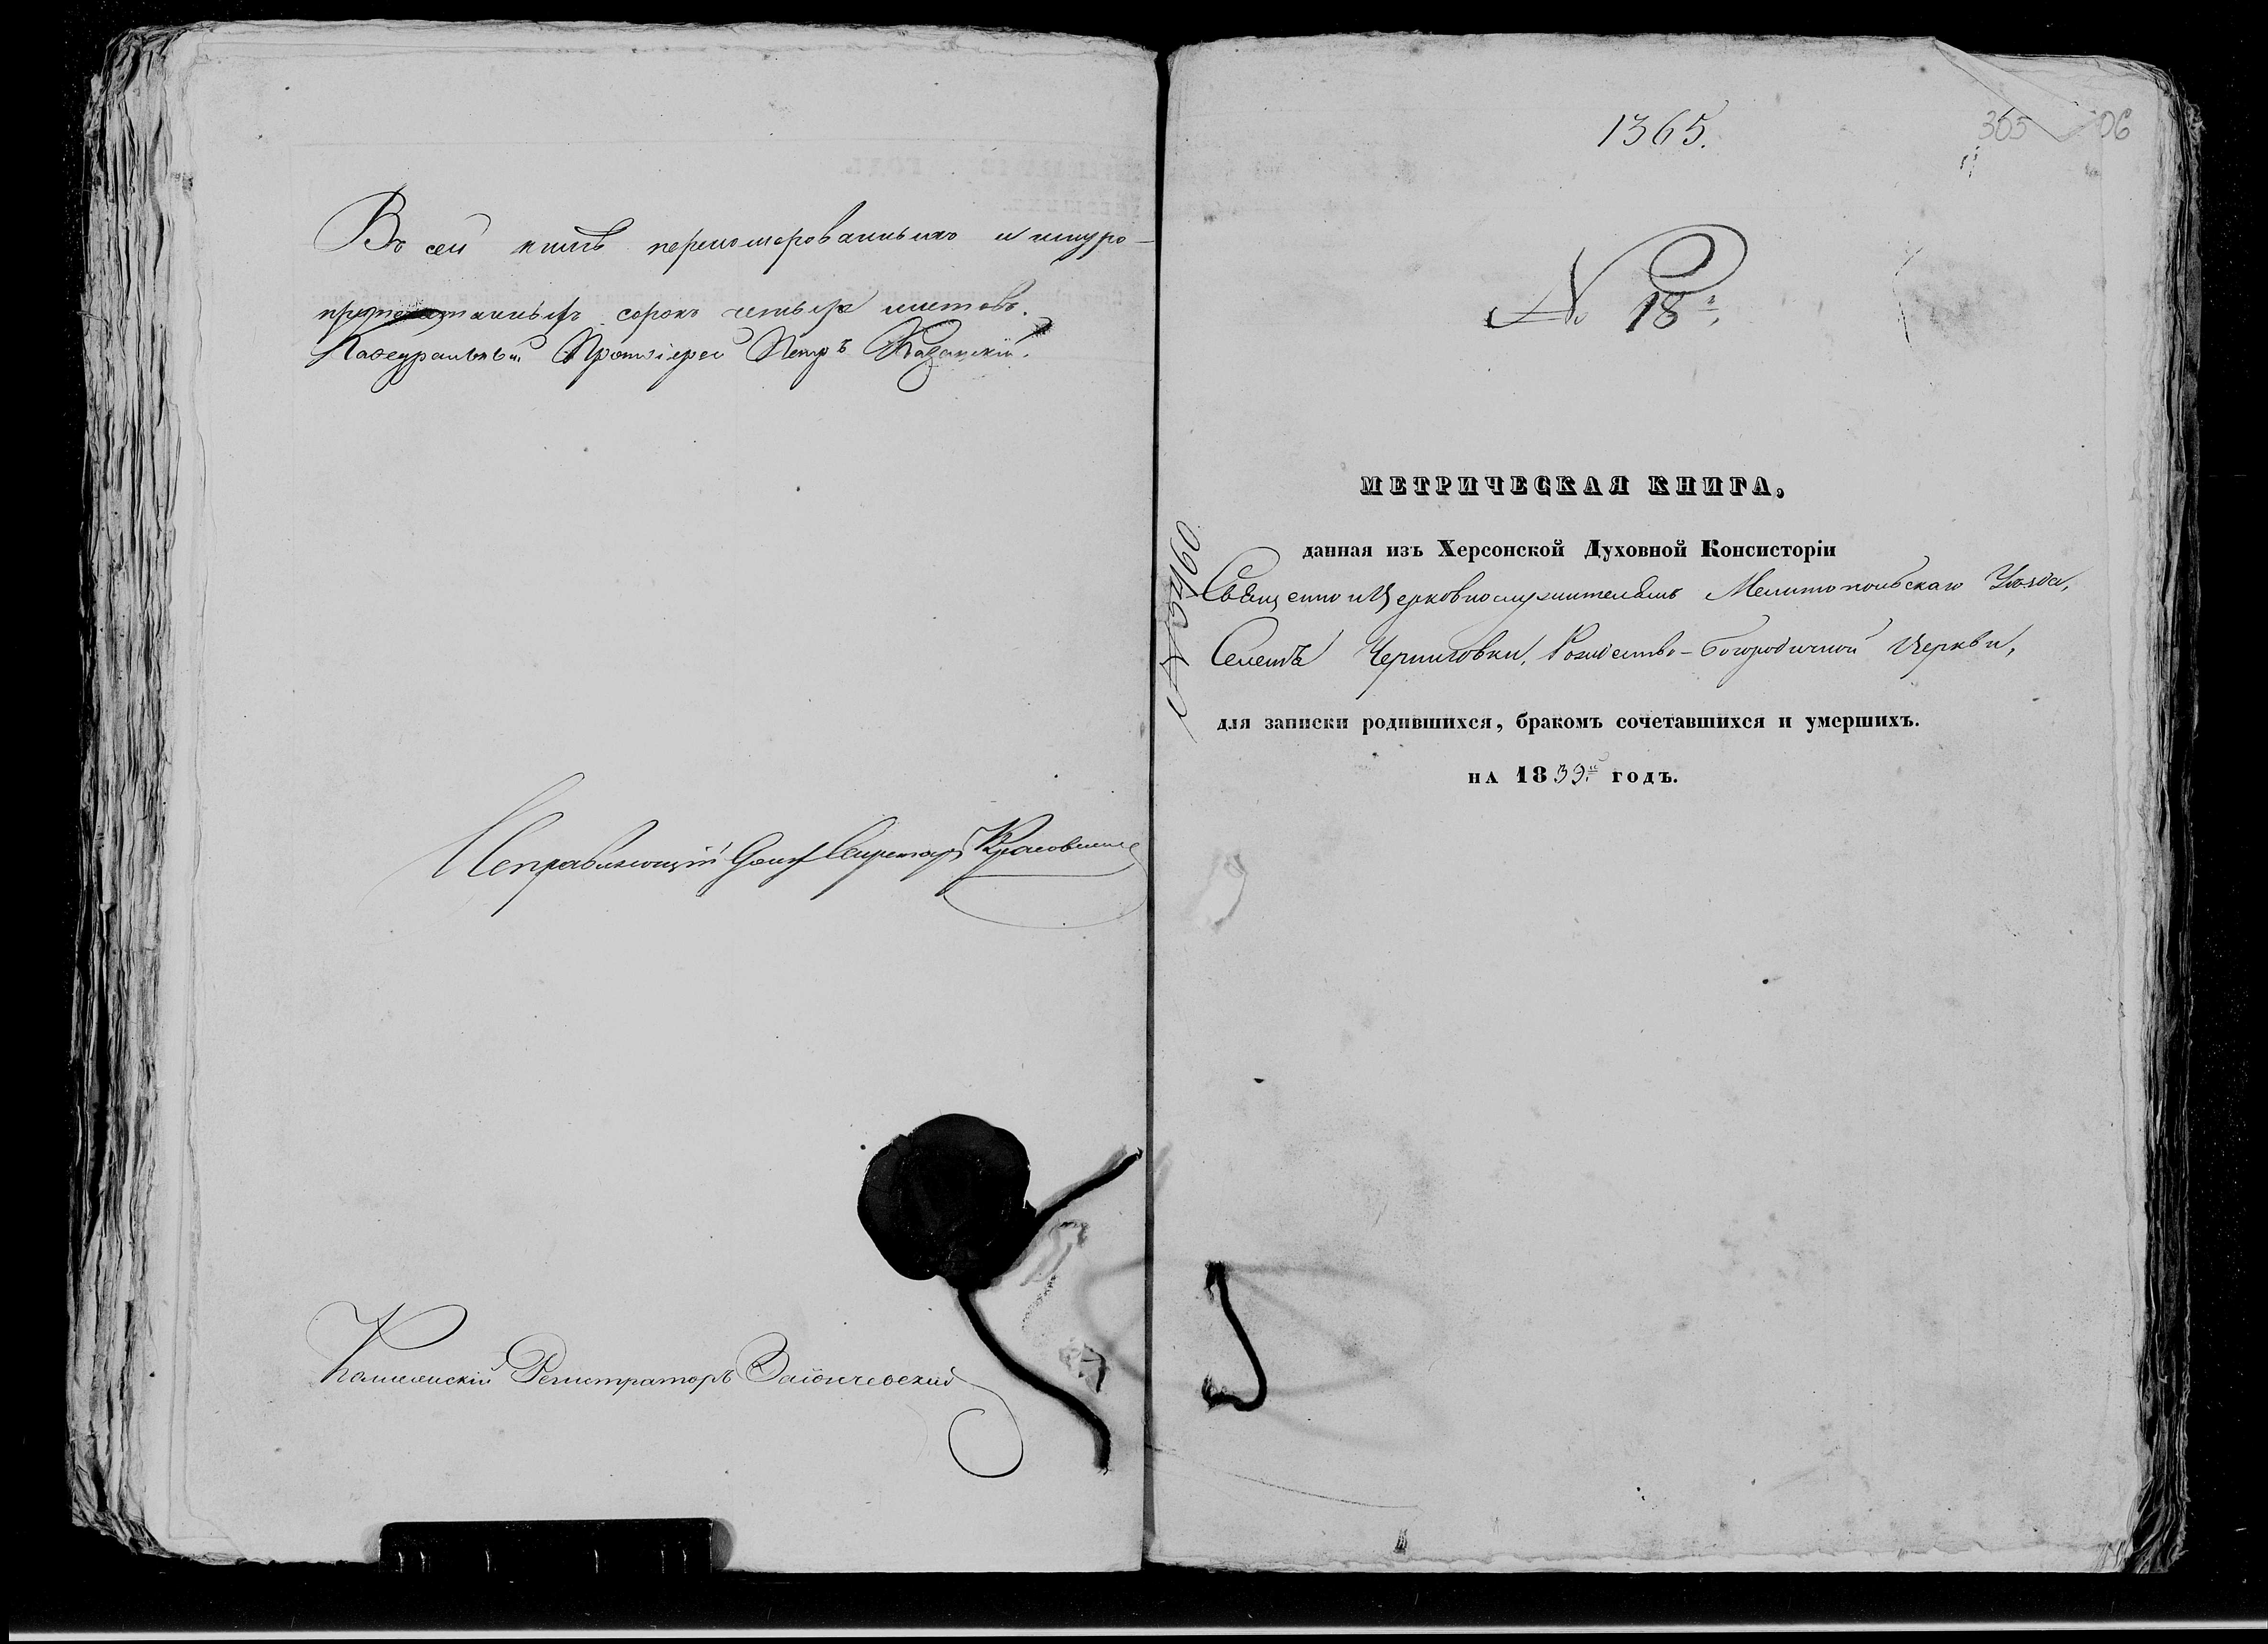 Въ сей книгѣ перенумерованныхъ и шнуро-
сорокъ четыре листовъ.
Кафедральный Протоіерей Петръ Казанскій.
Исправляющій долж Секретаря
Коллежскій Регистраторъ Заіончевскій
1365.
№ 18й
№ 3460
МЕТРИЧЕСКАЯ КНИГА,
данная изъ Херсонской Духовной Консисторіи
Священно и Церковнослужителямъ Мелитопольскаго Уѣзда,
Селенія Черниговки, Рождество-Богородичной Церкви,
для записки родившихся, бракомъ сочетавшихся и умершихъ.
НА 1839.й ГОДЪ.